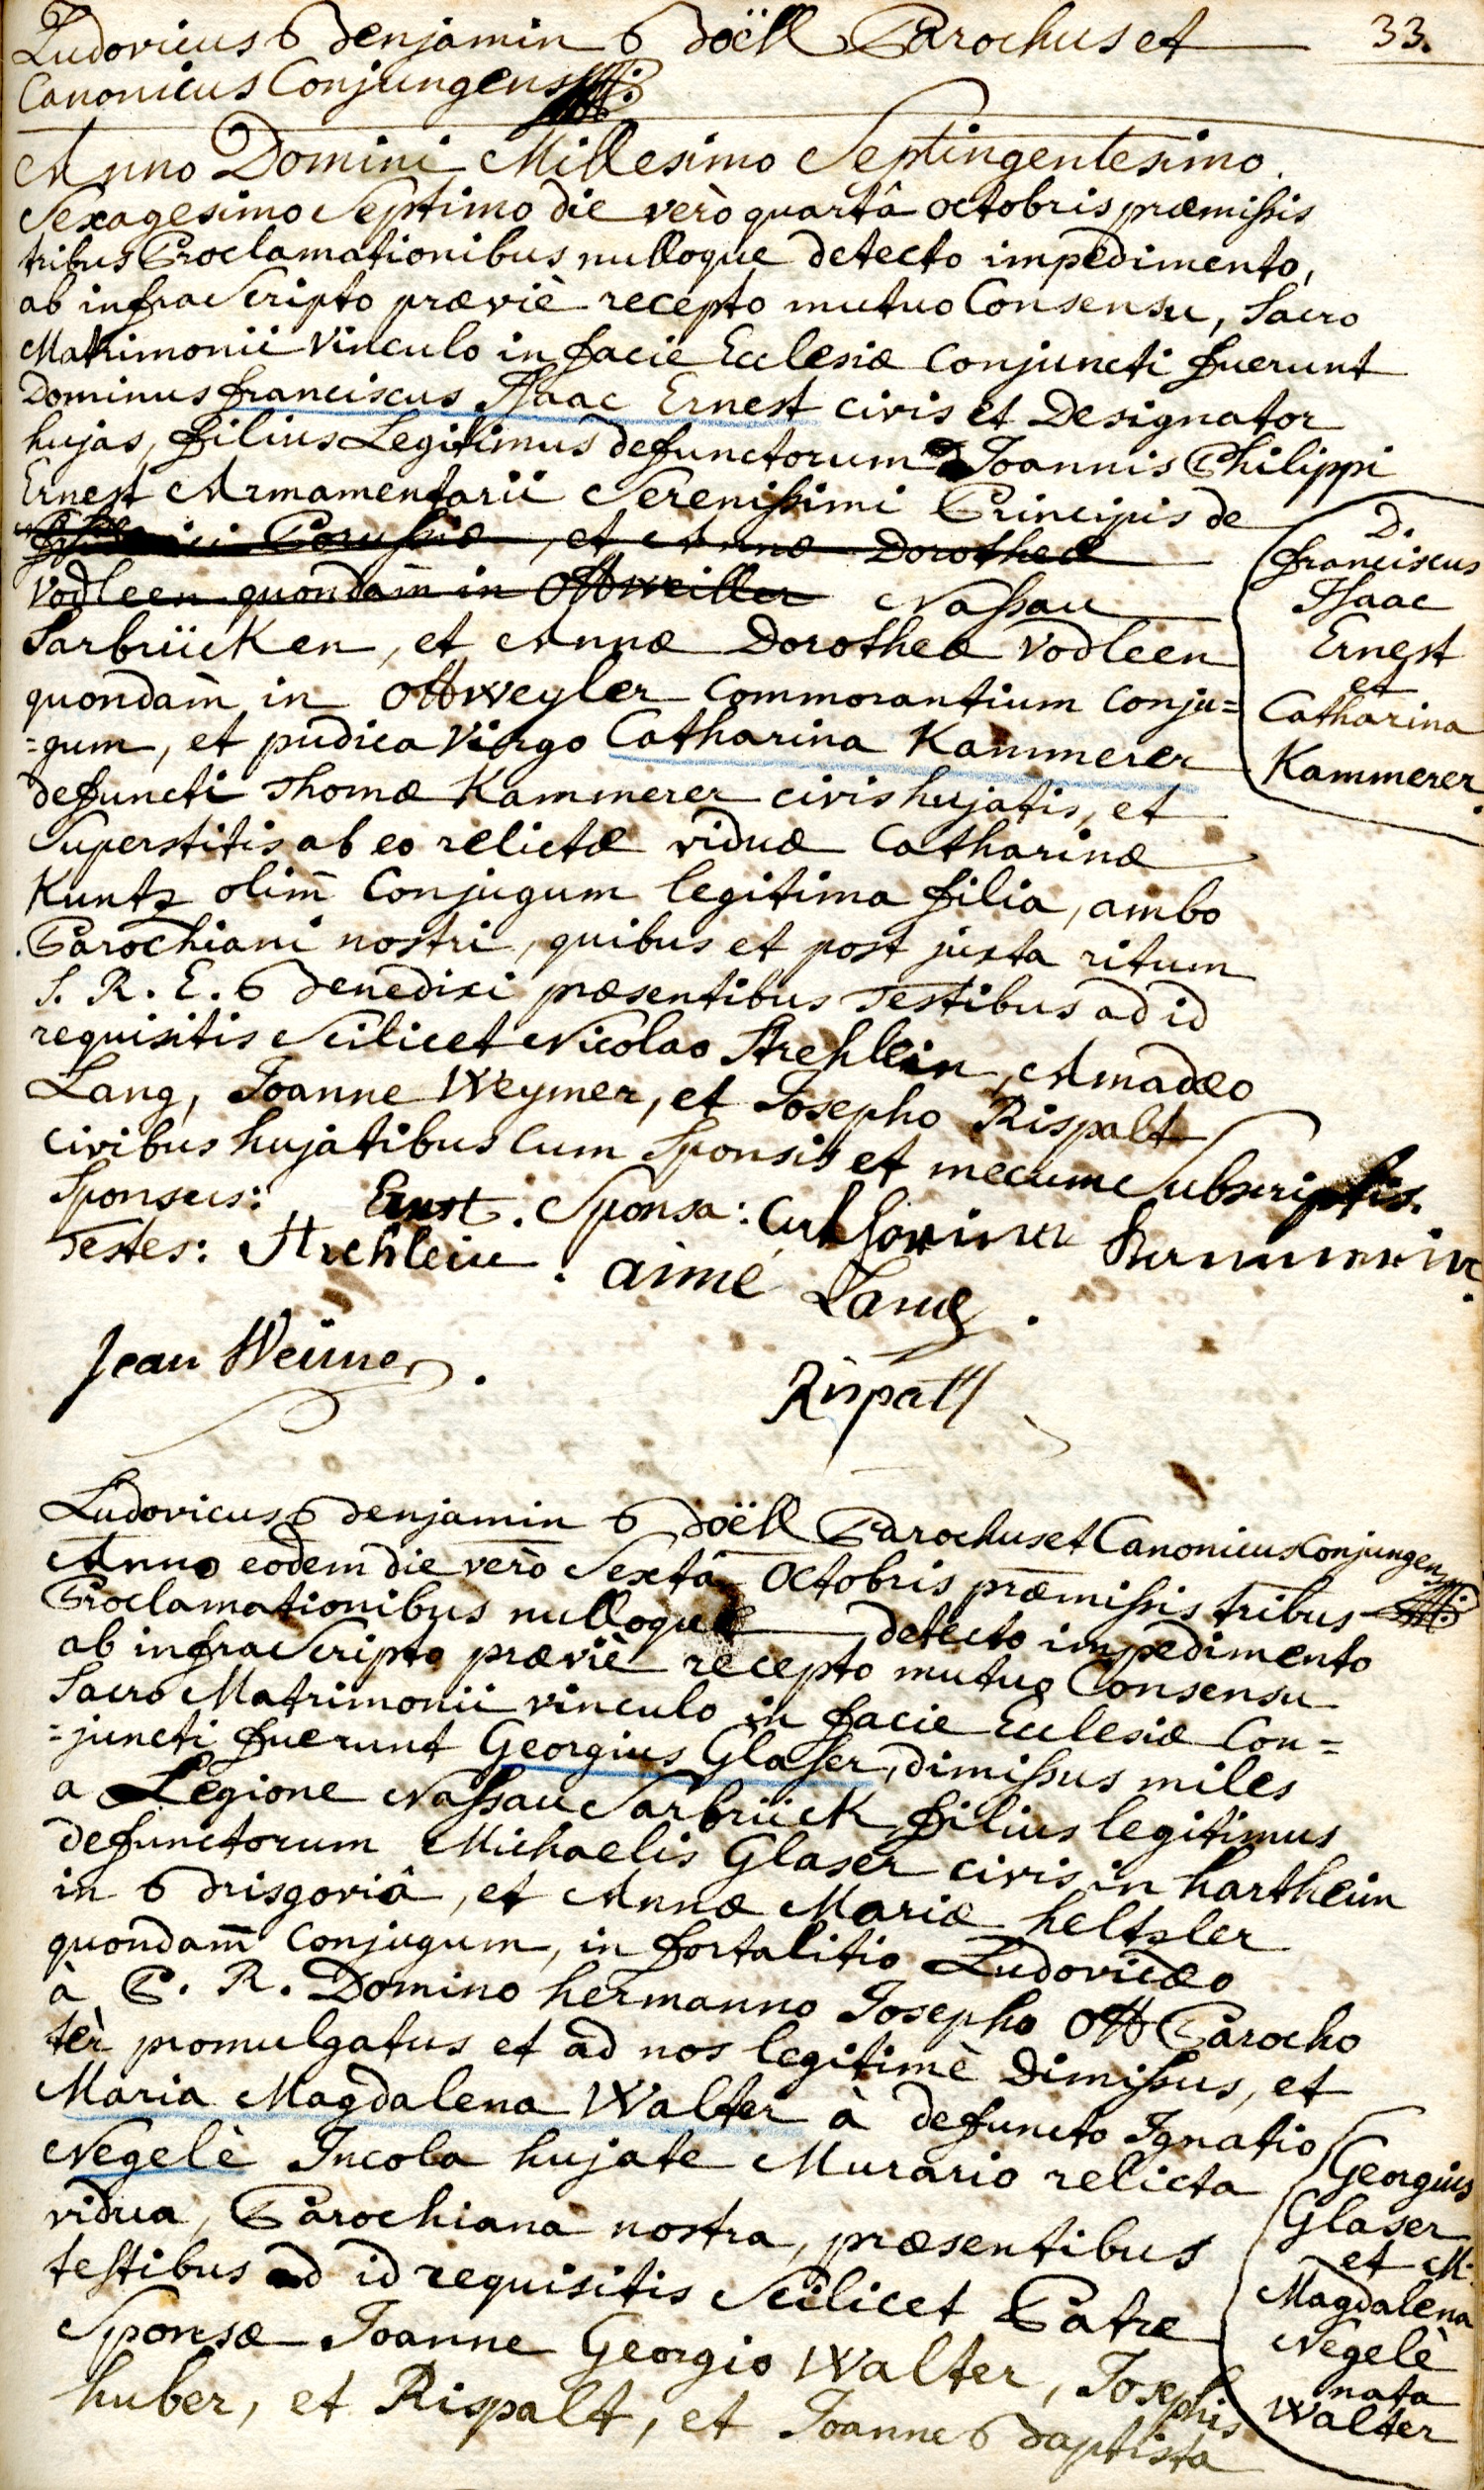 Ludovicus Benjamin Boëll Parochus et
33.
Canonicus Conjungens
Anno Domini Millesimo Septingentesimo
Sexagesimo Septimo die verò quartâ octobris præmissis
tribus Proclamationibus nulloque detecto impedimento,
ab infra Scripto præviè recepto mutuo Consensu, Sacro
Matrimonii Vinculo in facie Ecclesiæ Conjuncti fuerunt
Dominus franciscus Isaac Ernest civis et Designator
hujas, filius Legitimus defunctorum Joannis Philippi
Ernest Armamentarii Serenissimi Principis de
Porussiæ, et Annæ Dorotheæ
Vodleen quondam̄ in Ottweiller Nassau
Sarbrücken, et Annæ Dorotheæ Vodleen
quondam̄ in Ottweyler Commorantium Conju=
=gum, et pudica Virgo Catharina Kammerer
defuncti Thomæ Kammerer civis hujatis, et
Superstitis ab eo relictæ viduæ Catharinæ
Kuntz olim̄ Conjugum legitima filia, ambo
Parochiani nostri, quibus et post juxta ritum
S. R. E. Benedixi præsentibus Testibus ad id
requisitis Scilicet Nicolao Strehlein, Amadæo
Lang, Joanne Weymer, et Josepho Rispalt
Civibus hujatibus Cum Sponsis et mecum Subscriptis.
Sponsus: Ernst. Sponsa: Catharina Kammererin.
Testes: Strehlein. aimé Lang.
Jean Weimer.
Rispalt
D.
franciscus
Isaac
Ernest
et
Catharina
Kammerer.
Ludovicus Benjamin Boëll Parochus et Canonicus Conjungens
Anno eodem die verò Sextâ Octobris præmissis tribus
Proclamationibus nulloque detecto impedimento
ab infra Scripto præviè recepto mutuo Consensu
Sacro Matrimonii vinculo in facie Ecclesiæ Con=
=juncti fuerunt Georgius Glasser, dimissus miles
a Legione Nassau Sarbrück, filius legitimus
defunctorum Michaelis Glaser civis in hartheim
in Brisgoviâ, et Annæ Mariæ heltzler
quondam̄ Conjugum, in fortalitio Ludovicæo
à P. R. Domino hermanno Josepho Ott Parocho
tèr promulgatus et ad nos legitimè Dimissus, et
Maria Magdalena Walter à defuncto Ignatio
Negelè Incola hujate Murario relicta
vidua, Parochiana nostra, præsentibus
testibus ad id requisitis Scilicet Patre
Sponsæ Joanne Georgio Walter, Josephis
huber, et Rispalt, et Joanne Baptista
Georgius
Glaser
et M:
Magdalena
Negelè
nata
Walter